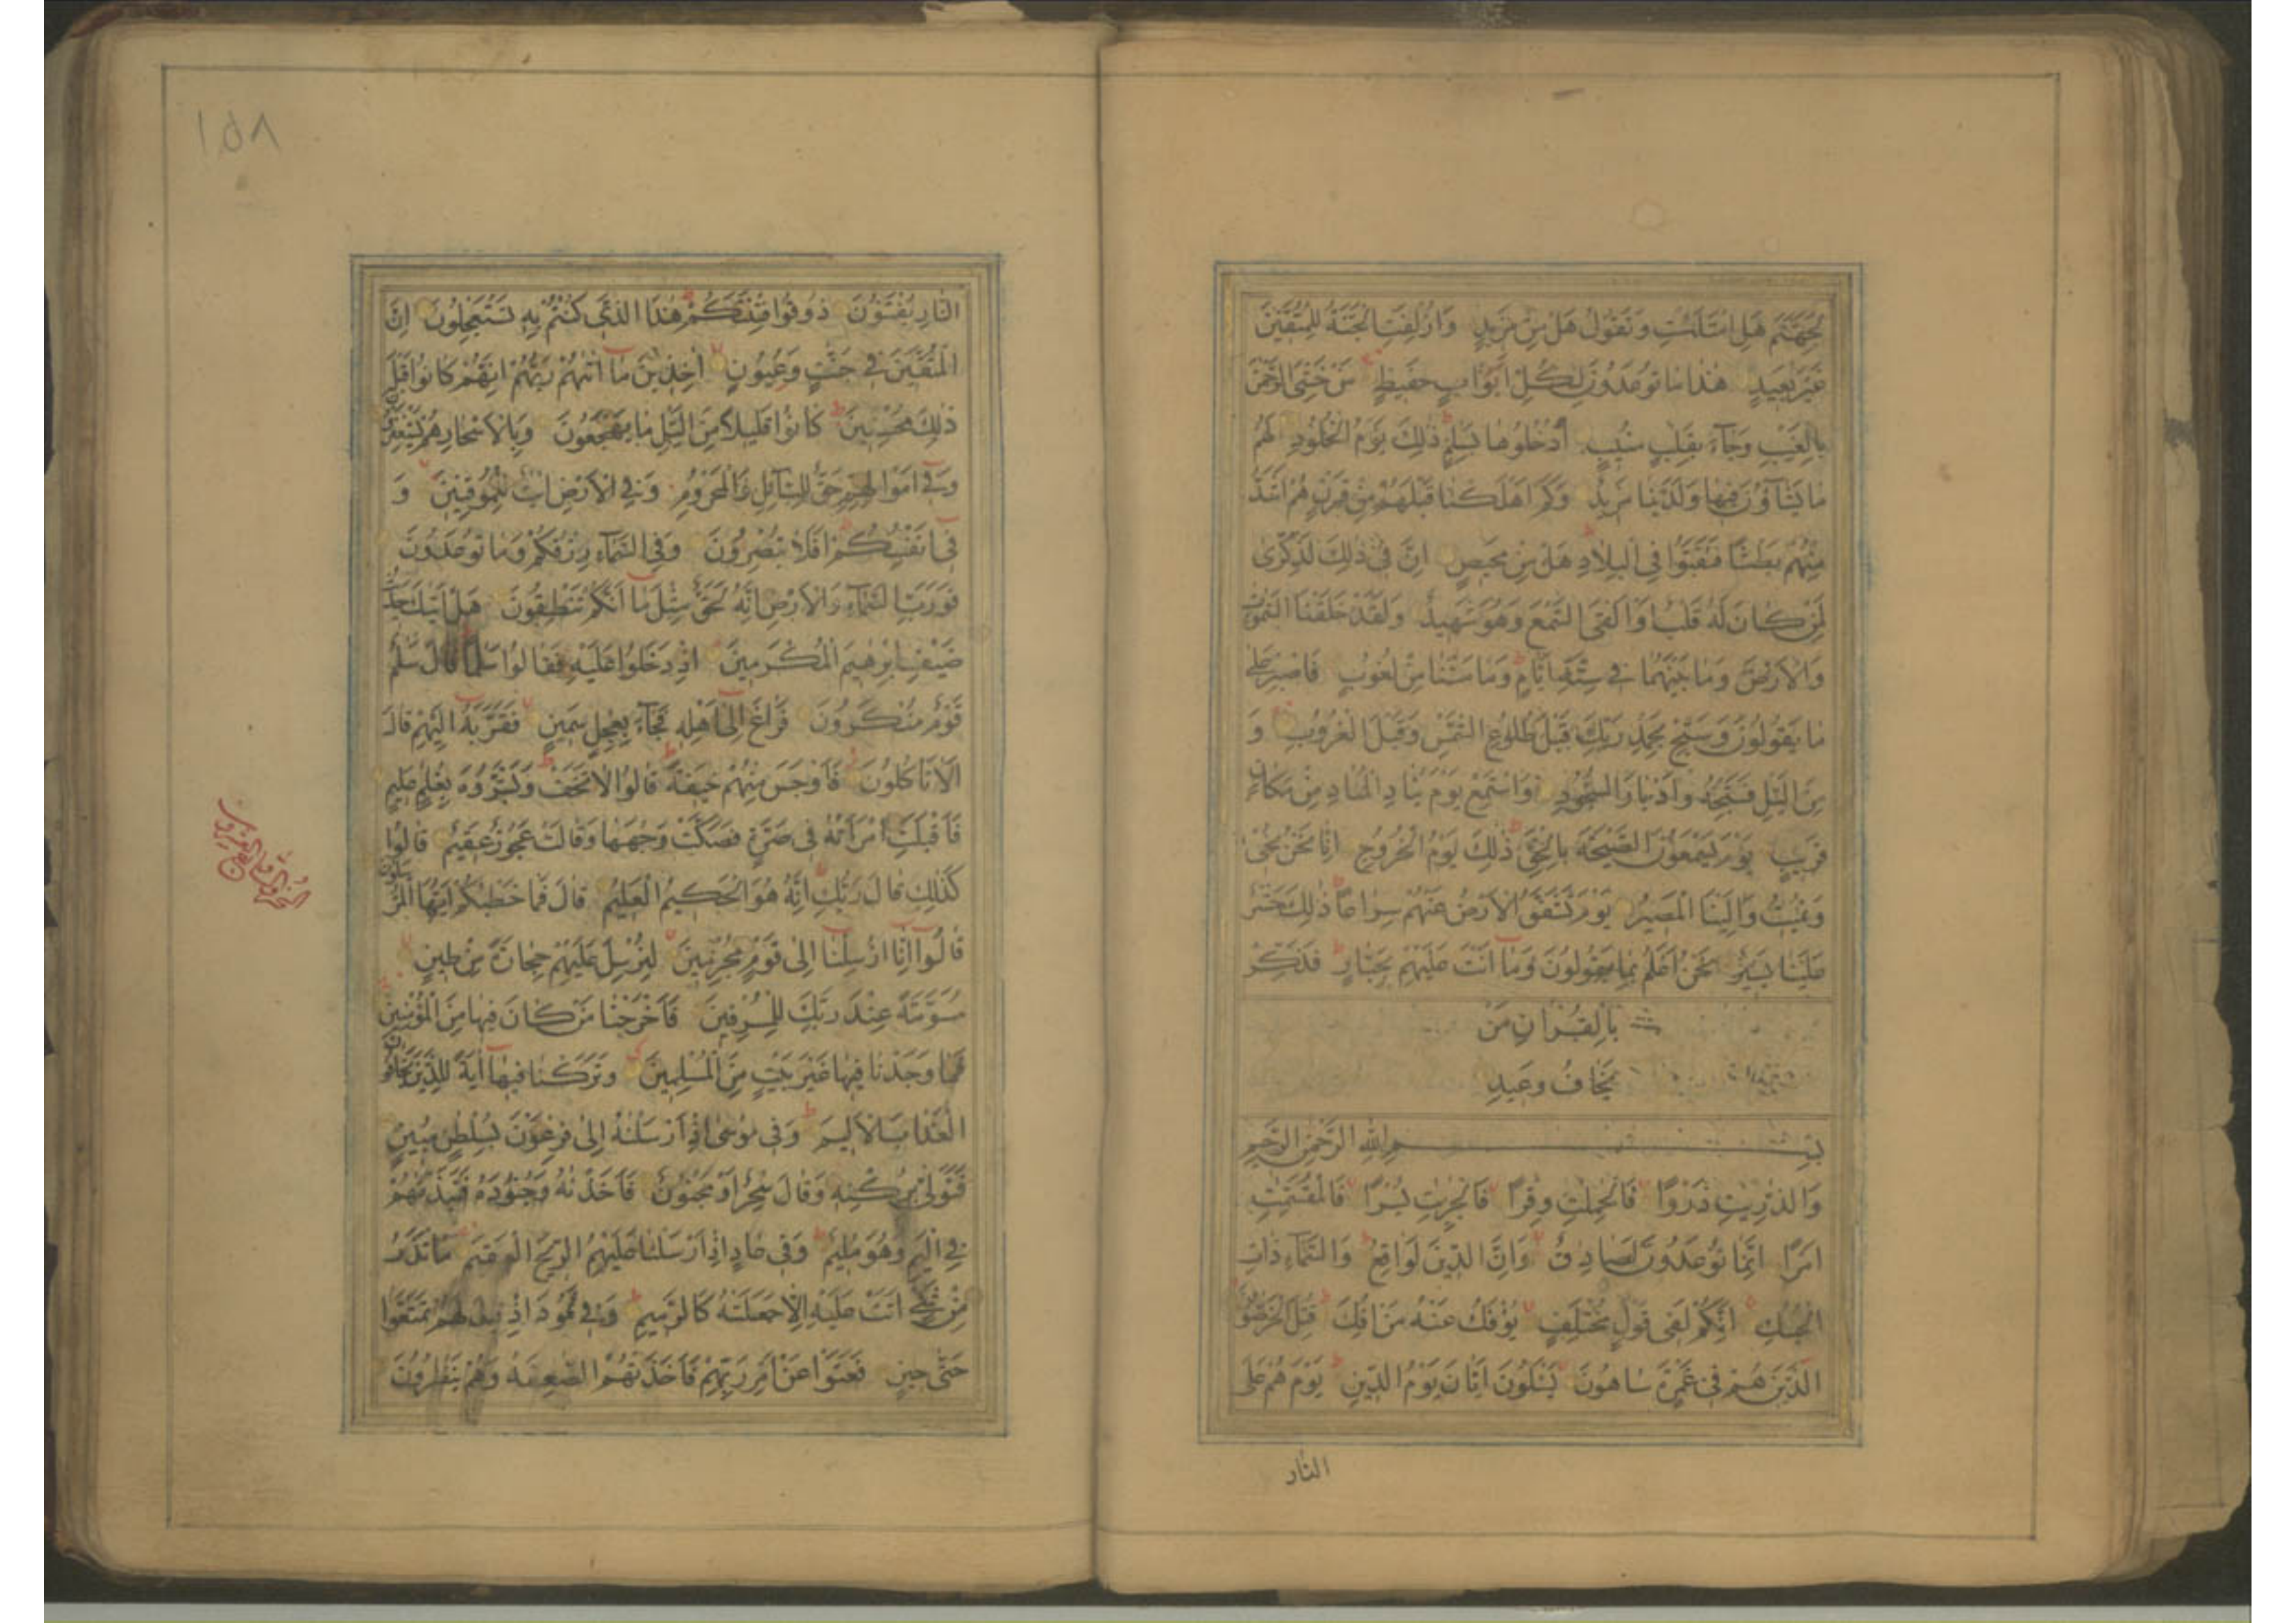 لِجَهَنَّمَ هَلِ امْتَلَئْتِ وَتَقُولُ هَلْ مِنْ مَزِيدٍ وَاُزْلِفَتِ الْجَنَّةُ لِلْمُتَّقِينَ
غَيْرَ بَعِيدٍ هٰذَا مَا تُوعَدُونَ لِكُلِّ اَوَّابٍ حَفِيظٍ مَنْ خَشِيَ الرَّحْمٰنَ
بِالْغَيْبِ وَجَآءَ بِقَلْبٍ مُنِيبٍ اُدْخُلُوهَا بِسَلٰمٍ ذٰلِكَ يَوْمُ الْخُلُودِ لَهُمْ
مَا يَشَآؤُنَ فِيهَا وَلَدَيْنَا مَزِيدٌ وَكَمْ اَهْلَكْنَا قَبْلَهُمْ مِنْ قَرْنٍ هُمْ اَشَدُّ
مِنْهُمْ بَطْشًا فَنَقَّبُوا فِي الْبِلَادِ هَلْ مِنْ مَحِيصٍ اِنَّ فِي ذٰلِكَ لَذِكْرٰى
لِمَنْ كَانَ لَهُ قَلْبٌ اَوْ اَلْقَى السَّمْعَ وَهُوَ شَهِيدٌ وَلَقَدْ خَلَقْنَا السَّمٰوٰتِ
وَالْاَرْضَ وَمَا بَيْنَهُمَا فِي سِتَّةِ اَيَّامٍ وَمَا مَسَّنَا مِنْ لُغُوبٍ فَاصْبِرْ عَلٰى
مَا يَقُولُونَ وَسَبِّحْ بِحَمْدِ رَبِّكَ قَبْلَ طُلُوعِ الشَّمْسِ وَقَبْلَ الْغُرُوبِ وَ
مِنَ الَّيْلِ فَسَبِّحْهُ وَاَدْبَارَ السُّجُودِ وَاسْتَمِعْ يَوْمَ يُنَادِ الْمُنَادِ مِنْ مَكَانٍ
قَرِيبٍ يَوْمَ يَسْمَعُونَ الصَّيْحَةَ بِالْحَقِّ ذٰلِكَ يَوْمُ الْخُرُوجِ اِنَّا نَحْنُ نُحْيِ
وَنُمِيتُ وَاِلَيْنَا الْمَصِيرُ يَوْمَ تَشَقَّقُ الْاَرْضُ عَنْهُمْ سِرَاعًا ذٰلِكَ حَشْرٌ
عَلَيْنَا يَسِيرٌ نَحْنُ اَعْلَمُ بِمَا يَقُولُونَ وَمَا اَنْتَ عَلَيْهِمْ بِجَبَّارٍ فَذَكِّرْ
بِالْقُرْاٰنِ مَنْ
يَخَافُ وَعِيدِ
بِسْمِ اللّٰهِ الرَّحْمٰنِ الرَّحِيمِ
وَالذّٰرِيٰتِ ذَرْوًا فَالْحٰمِلٰتِ وِقْرًا فَالْجٰرِيٰتِ يُسْرًا فَالْمُقَسِّمٰتِ
اَمْرًا اِنَّمَا تُوعَدُونَ لَصَادِقٌ وَاِنَّ الدِّينَ لَوَاقِعٌ وَالسَّمَآءِ ذَاتِ
الْحُبُكِ اِنَّكُمْ لَفِي قَوْلٍ مُخْتَلِفٍ يُؤْفَكُ عَنْهُ مَنْ اُفِكَ قُتِلَ الْخَرّٰصُونَ
الَّذِينَ هُمْ فِي غَمْرَةٍ سَاهُونَ يَسْئَلُونَ اَيَّانَ يَوْمُ الدِّينِ يَوْمَ هُمْ عَلَى
النَّار
١٥٨
النَّارِ يُفْتَنُونَ ذُوقُوا فِتْنَتَكُمْ هٰذَا الَّذِي كُنْتُمْ بِهِ تَسْتَعْجِلُونَ اِنَّ
الْمُتَّقِينَ فِي جَنّٰتٍ وَعُيُونٍ اٰخِذِينَ مَا اٰتٰهُمْ رَبُّهُمْ اِنَّهُمْ كَانُوا قَبْلَ
ذٰلِكَ مُحْسِنِينَ كَانُوا قَلِيلًا مِنَ الَّيْلِ مَا يَهْجَعُونَ وَبِالْاَسْحَارِ هُمْ يَسْتَغْفِرُونَ
وَفِي اَمْوَالِهِمْ حَقٌّ لِلسَّآئِلِ وَالْمَحْرُومِ وَفِي الْاَرْضِ اٰيٰتٌ لِلْمُوقِنِينَ وَ
فِي اَنْفُسِكُمْ اَفَلَا تُبْصِرُونَ وَفِي السَّمَآءِ رِزْقُكُمْ وَمَا تُوعَدُونَ
فَوَرَبِّ السَّمَآءِ وَالْاَرْضِ اِنَّهُ لَحَقٌّ مِثْلَ مَا اَنَّكُمْ تَنْطِقُونَ هَلْ اَتٰيكَ حَدِيثُ
ضَيْفِ اِبْرٰهِيمَ الْمُكْرَمِينَ اِذْ دَخَلُوا عَلَيْهِ فَقَالُوا سَلٰمًا قَالَ سَلٰمٌ
قَوْمٌ مُنْكَرُونَ فَرَاغَ اِلٰى اَهْلِهِ فَجَآءَ بِعِجْلٍ سَمِينٍ فَقَرَّبَهُ اِلَيْهِمْ قَالَ
اَلَا تَاْكُلُونَ فَاَوْجَسَ مِنْهُمْ خِيفَةً قَالُوا لَا تَخَفْ وَبَشَّرُوهُ بِغُلٰمٍ عَلِيمٍ
فَاَقْبَلَتِ امْرَاَتُهُ فِي صَرَّةٍ فَصَكَّتْ وَجْهَهَا وَقَالَتْ عَجُوزٌ عَقِيمٌ قَالُوا
كَذٰلِكِ قَالَ رَبُّكِ اِنَّهُ هُوَ الْحَكِيمُ الْعَلِيمُ قَالَ فَمَا خَطْبُكُمْ اَيُّهَا الْمُرْسَلُونَ
قَالُوا اِنَّا اُرْسِلْنَا اِلٰى قَوْمٍ مُجْرِمِينَ لِنُرْسِلَ عَلَيْهِمْ حِجَارَةً مِنْ طِينٍ
مُسَوَّمَةً عِنْدَ رَبِّكَ لِلْمُسْرِفِينَ فَاَخْرَجْنَا مَنْ كَانَ فِيهَا مِنَ الْمُؤْمِنِينَ
فَمَا وَجَدْنَا فِيهَا غَيْرَ بَيْتٍ مِنَ الْمُسْلِمِينَ وَتَرَكْنَا فِيهَا اٰيَةً لِلَّذِينَ يَخَافُونَ
الْعَذَابَ الْاَلِيمَ وَفِي مُوسٰى اِذْ اَرْسَلْنٰهُ اِلٰى فِرْعَوْنَ بِسُلْطٰنٍ مُبِينٍ
فَتَوَلّٰى بِرُكْنِهِ وَقَالَ سٰحِرٌ اَوْ مَجْنُونٌ فَاَخَذْنٰهُ وَجُنُودَهُ فَنَبَذْنٰهُمْ
فِي الْيَمِّ وَهُوَ مُلِيمٌ وَفِي عَادٍ اِذْ اَرْسَلْنَا عَلَيْهِمُ الرِّيحَ الْعَقِيمَ مَا تَذَرُ
مِنْ شَيْءٍ اَتَتْ عَلَيْهِ اِلَّا جَعَلَتْهُ كَالرَّمِيمِ وَفِي ثَمُودَ اِذْ قِيلَ لَهُمْ تَمَتَّعُوا
حَتّٰى حِينٍ فَعَتَوْا عَنْ اَمْرِ رَبِّهِمْ فَاَخَذَتْهُمُ الصّٰعِقَةُ وَهُمْ يَنْظُرُونَ